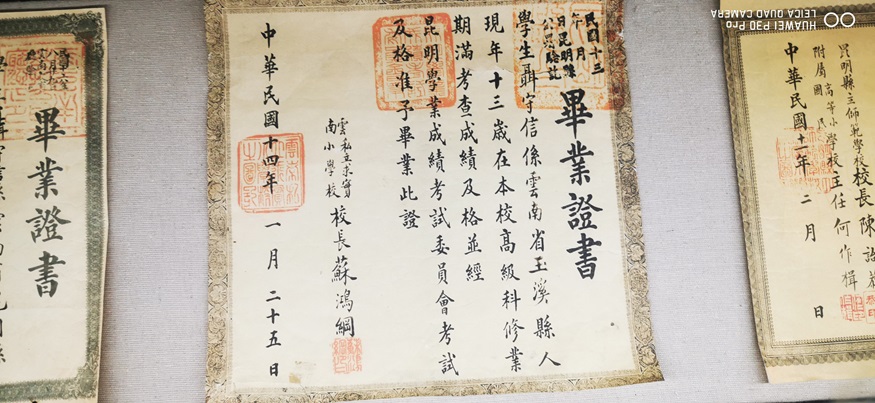 畢業證書
學生聶守信係雲南省玉溪縣人
現年十三歲在本校高級科修業
期滿考查成績及格並經
昆明學業成績考試委員會考試
及格准予畢業此證
雲南私立求實
小學校
校長蘇鴻綱
中華民國十四年一月二十五日
民國十三
年月
日昆明縣
公署驗訖
畢業證書
昆明縣立師範學校校長陳
附屬高等小
國民
學校主任何作楫
中華民國十一年二月日
HUAWEI P30 Pro
LEICA QUAD CAMERA